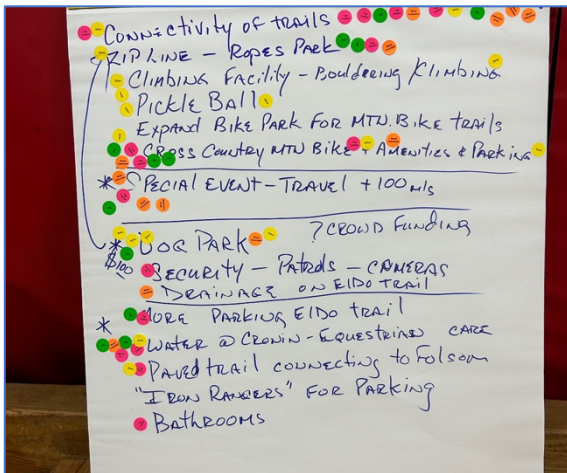 CONNECTIVITY OF TRAILS
ZIP LINE - ROPES PARK
CLIMBING FACILITY - BOULDERING / CLIMBING
PICKLE BALL
EXPAND BIKE PARK FOR MTN. BIKE TRAILS
CROSS COUNTRY MTN BIKE + AMENITIES & PARKING
* SPECIAL EVENT - TRAVEL +100 mls
? CROWD FUNDING
* DOG PARK
$100 SECURITY - PATROLS - CAMERAS
DRAINAGE ON ELDO TRAIL
* MORE PARKING ELDO TRAIL
WATER @ CRONIN - EQUESTRIAN CARE
PAVED TRAIL CONNECTING TO FOLSOM
"IRON RANGERS" FOR PARKING
BATHROOMS